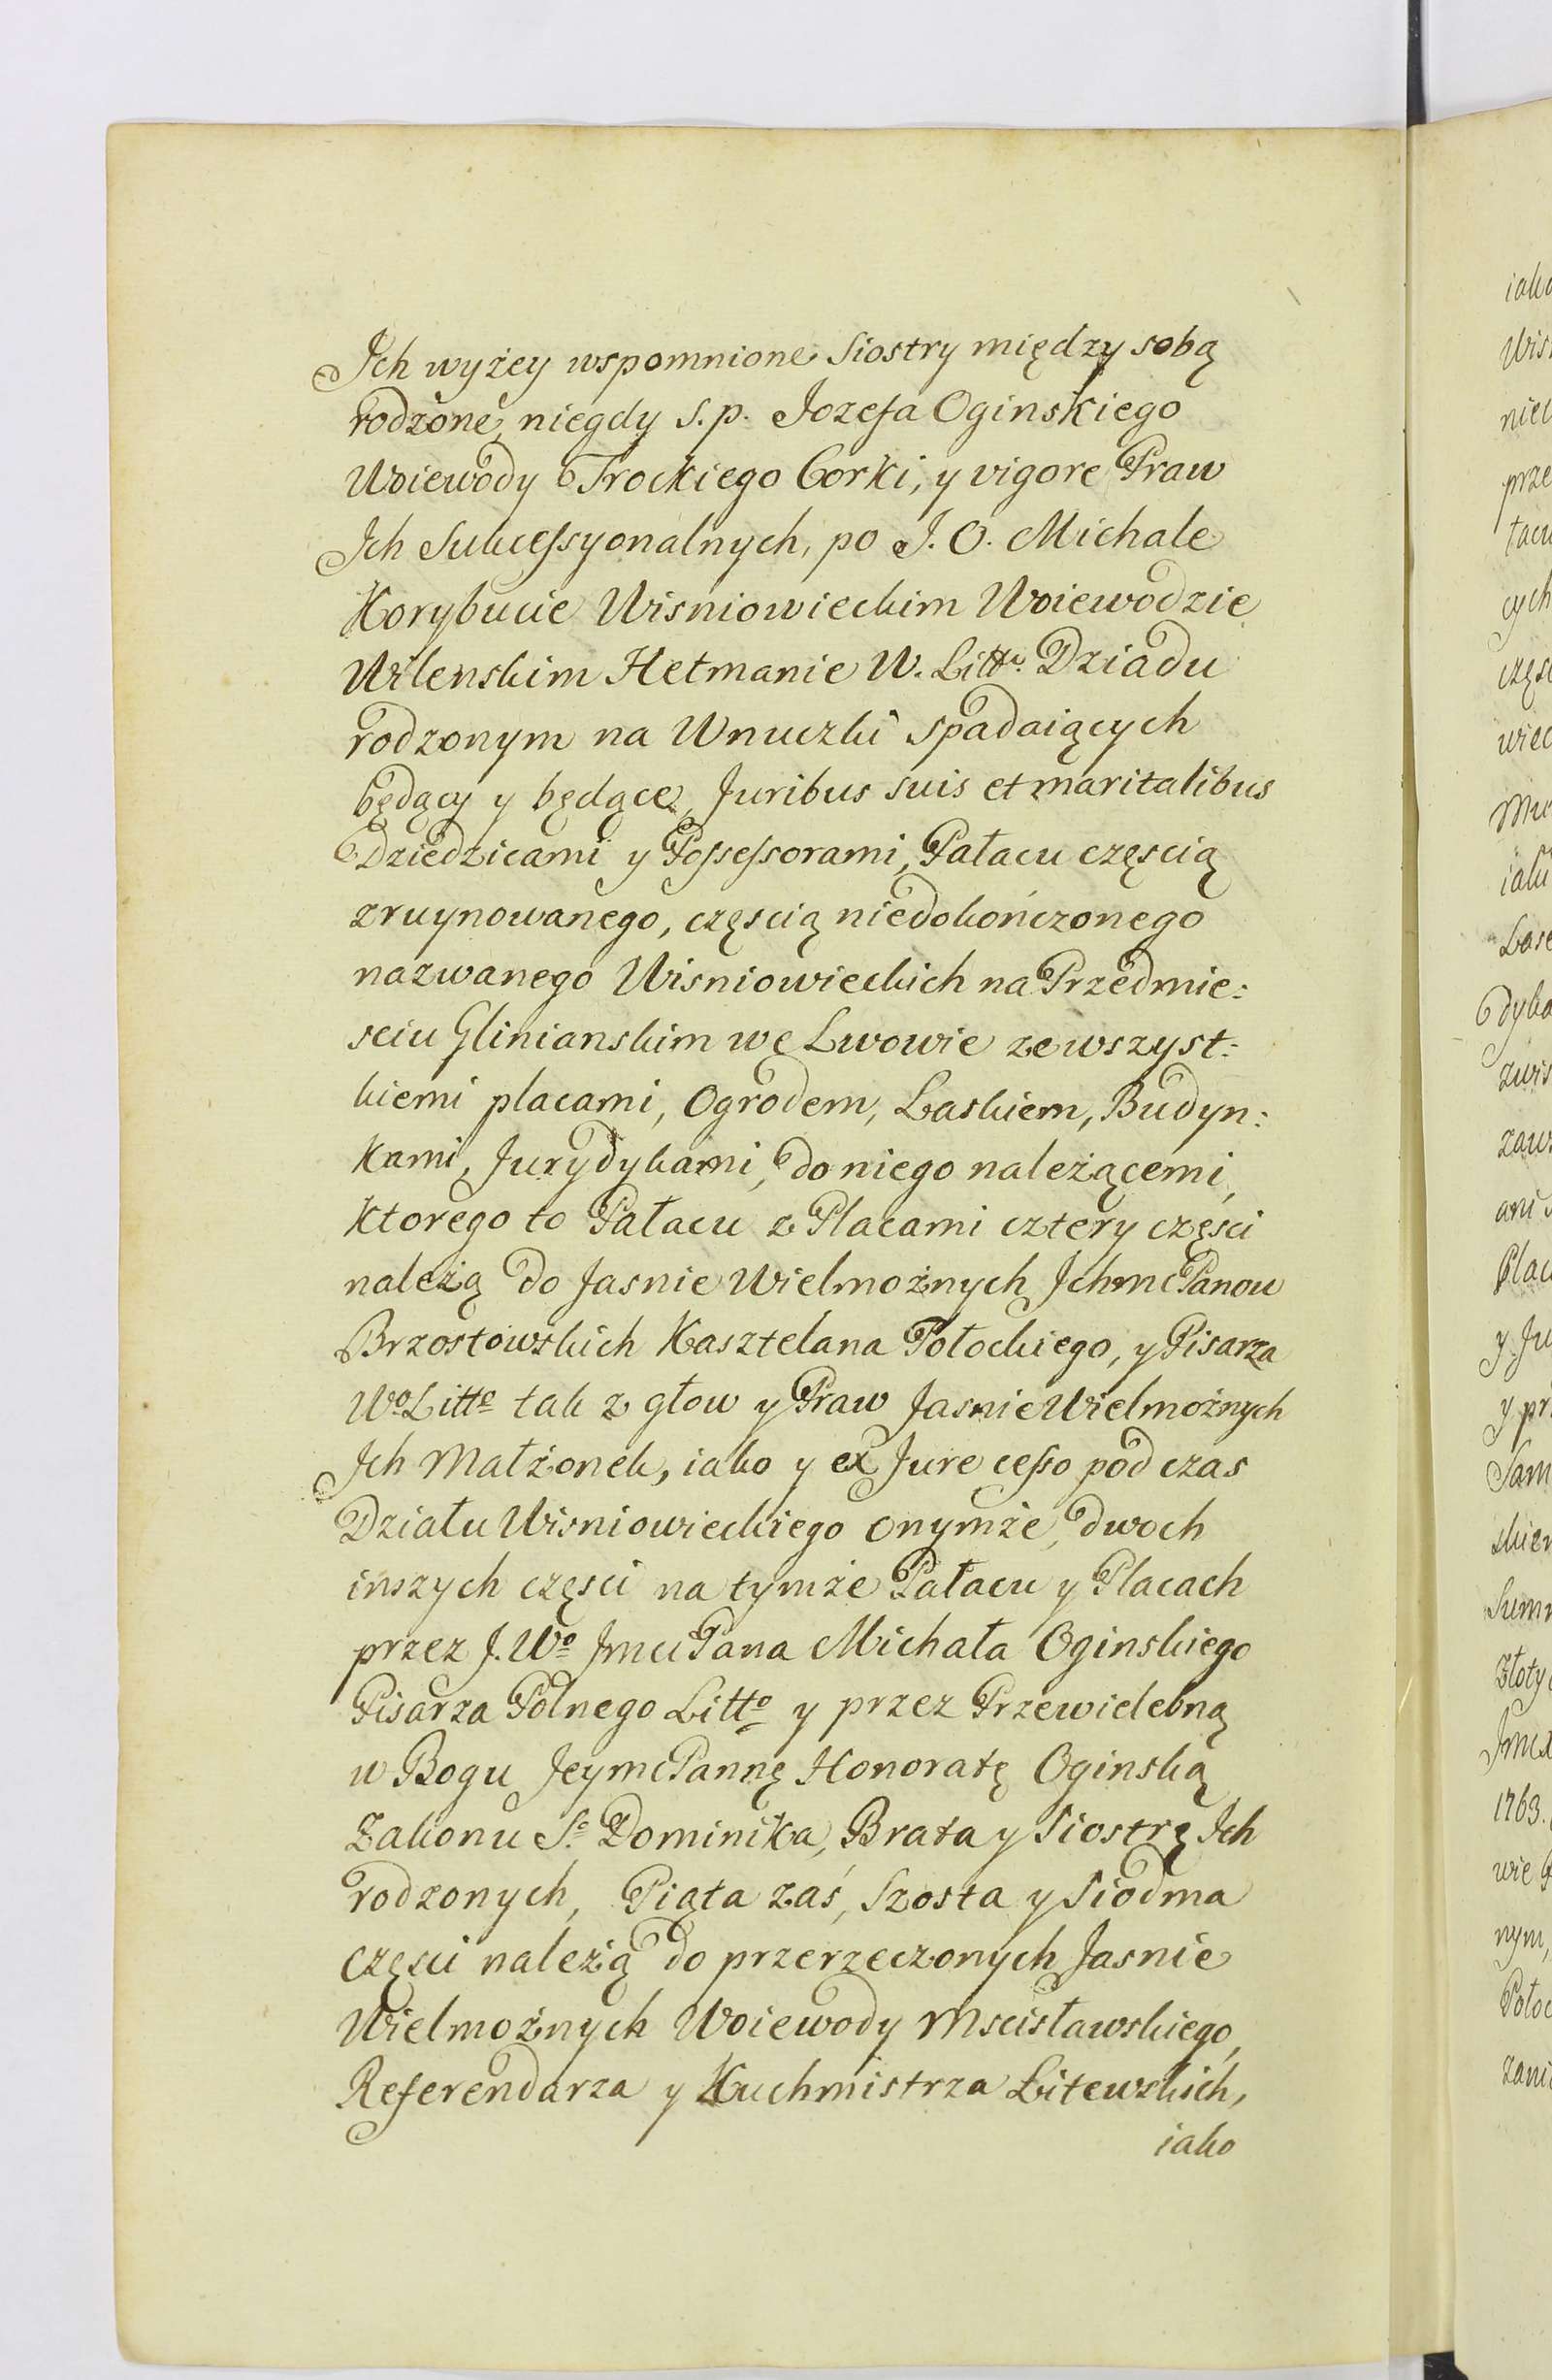 Ich wyżey wspomnione Siostry między sobą
rodzone, niegdy S. p. Jozefa Oginskiego
Woiewody Trockiego Corki, y vigore Praw
Ich Sukcessyonalnych, po J. O. Michale
Korybucie Wisniowieckim Woiewodzie
Wilenskim Hetmanie W. Litt. Dziadu
rodzonym na Wnuczki spadaiących
będący y będące, Juribus suis et maritalibus
Dziedzicami y Possessorami, Pałacu częscią
zruynowanego, częscią niedokończonego
nazwanego Wisniowieckich na Przedmie:
sciu Glinianskim we Lwowie ze wszyst:
kiemi placami, Ogrodem, Laskiem, Budyn:
kami, Jurydykami, do niego należącemi,
ktorego to Pałacu z Placami cztery częsci
należą do Jasnie Wielmożnych Ichmc Panow
Brzostowskich Kasztelana Połockiego, y Pisarza
Wo Litto tak z głow y Praw Jasnie Wielmożnych
Ich Małżonek, iako y ex Jure cesso pod czas
Działu Wisniowieckiego onymże, dwoch
inszych częsci na tymże Pałacu y Placach
przez J. Wo Jmci Pana Michała Oginskiego
Pisarza Polnego Litto y przez Przewielebną
w Bogu Jeymc Pannę Honoratę Oginską
Zakonu So Dominika, Brata y Siostrę Ich
rodzonych, Piąta zaś, Szosta y Siodma
Częsci należą do przerzeczonych Jasnie
Wielmożnych Woiewody Mscisławskiego,
Referendarza y Kuchmistrza Litewskich,
iako